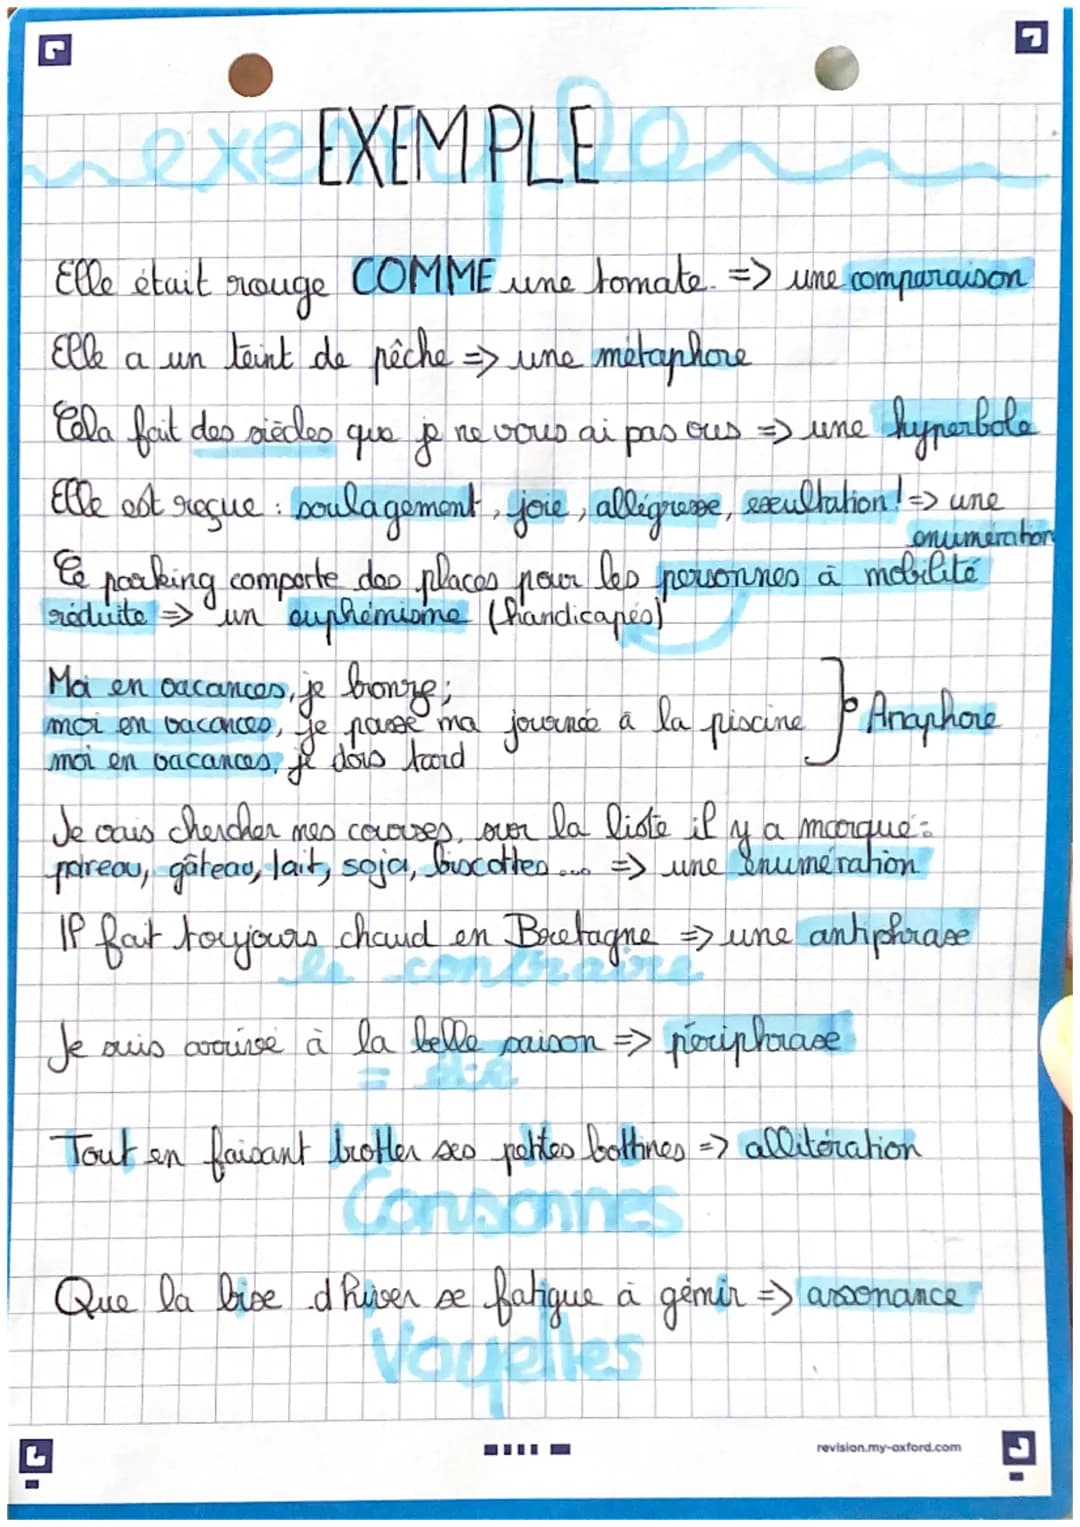 exemples
EXEMPLE
Elle était rouge COMME une tomate. => une comparaison
Elle a un teint de pêche => une métaphore
Cela fait des siècles que je ne vous ai pas vus => une hyperbole
Elle est reçue : soulagement, joie, allégresse, exultation! => une
énumération
Ce parking comporte des places pour les personnes à mobilité
réduite => un euphémisme (handicapés)
Moi en vacances, je bronze;
moi en vacances, je passe ma journée à la piscine
moi en vacances, je dors tard
Anaphore
Je vais chercher mes courses, sur la liste il y a marqué:
poireau, gâteau, lait, soja, biscottes... => une énumération
Il fait toujours chaud en Bretagne => une antiphrase
le contraire
Je suis arrivée à la belle saison => périphrase
= été
Tout en faisant trotter ses petites bottines => allitération
Consonnes
Que la bise d'hiver se fatigue à gémir => assonance
Voyelles
revision.my-oxford.com